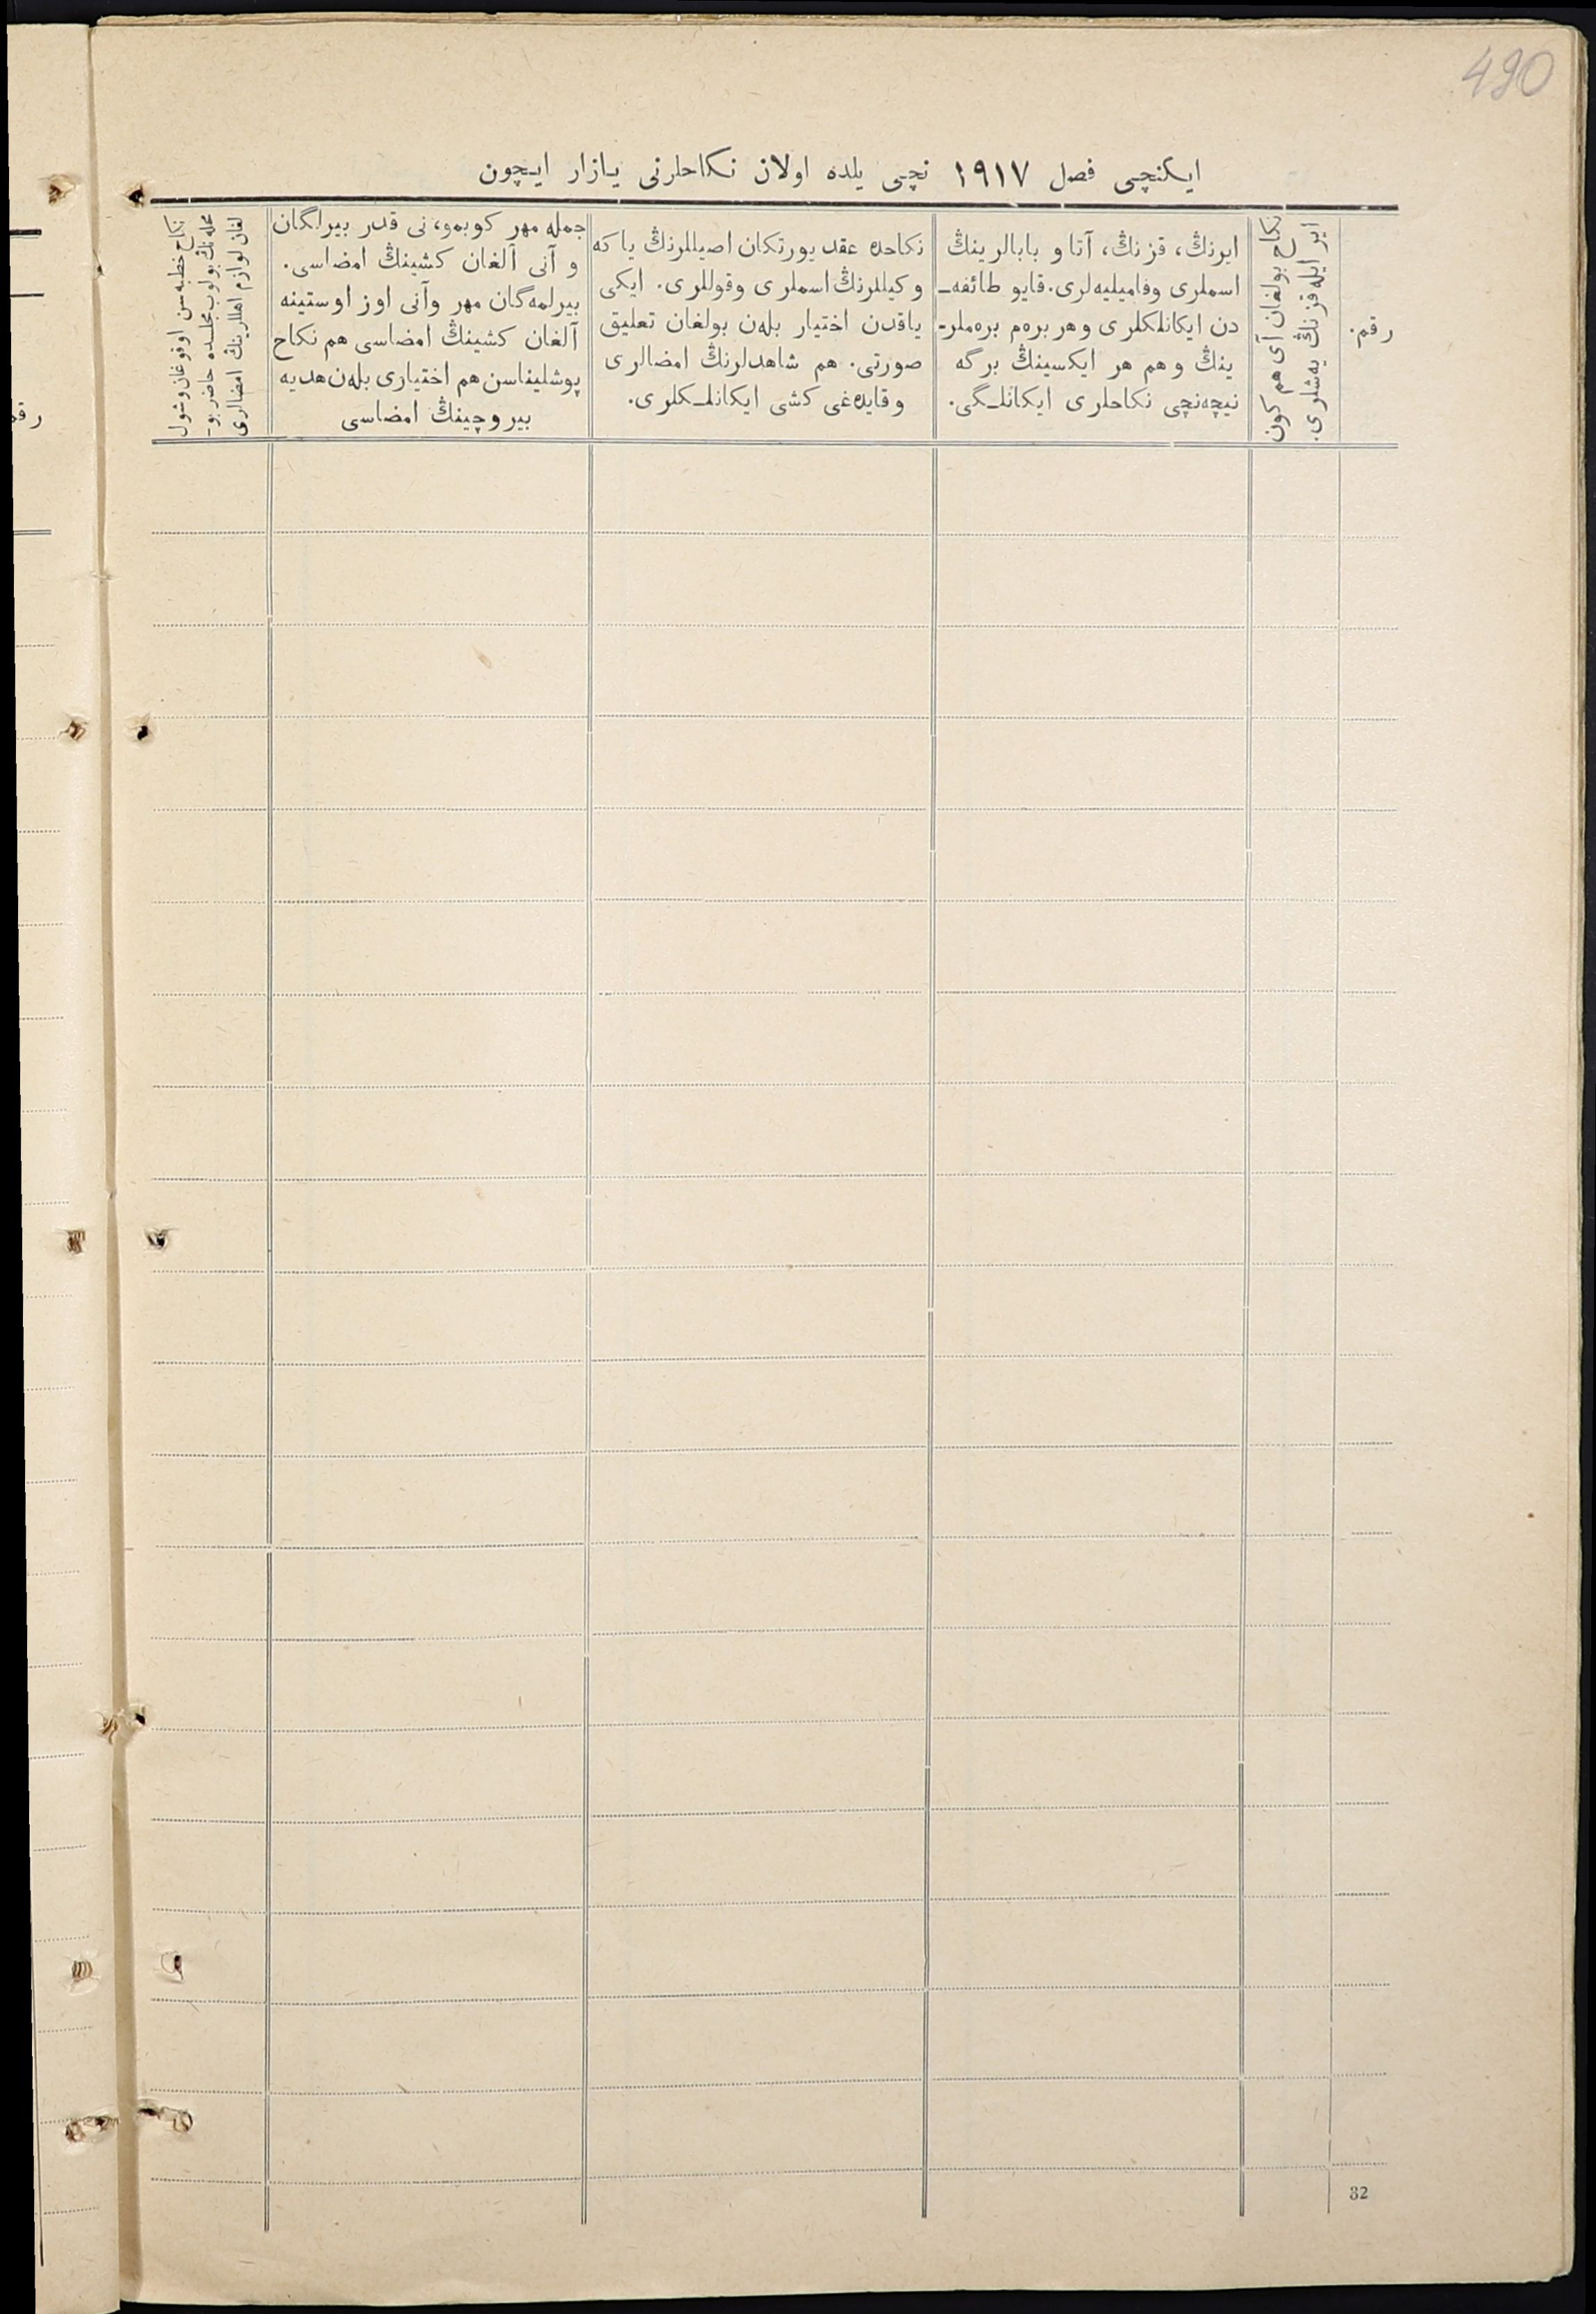 490
ایکنچی فصل ۱۹۱۷ نچی یلده اولان نکاحلرنی یازار ایچون
رقم.
نکاح بولغان آی هم کون
ایر ایله قزنڭ یه‌شلری.
ایرنڭ، قزنڭ، آتا و بابالرینڭ
اسملری وفامیلیه‌لری. قایو طائفه‌ـ
دن ایکانلکلری وهر بره‌م بره‌ملرـ
ینڭ وهم هر ایکسینڭ برگه
نیچه‌نچی نکاحلری ایکانلـگی.
نکاحده عقد یورتکان اصیللرنڭ یا که
وکیللرنڭ اسملری وقوللری. ایکی
یاقدن اختیار بله‌ن بولغان تعلیق
صورتی. هم شاهدلرنڭ امضالری
وقایده‌غی کشی ایکانلـکلری.
جمله مهر کوبمو، نی قدر بیرلگان
و آنی آلغان کشینڭ امضاسی.
بیرلمه‌گان مهر وآنی اوز اوستینه
آلغان کشینڭ امضاسی هم نکاح
پوشلیناسن هم اختیاری بله‌ن هدیه
بیروچینڭ امضاسی
نکاح خطبه‌سن اوقوغان وشول
محله‌نڭ بولوب مجلسده حاضر بوـ
لغان لوازم اهللارینڭ امضالری
رقم
32